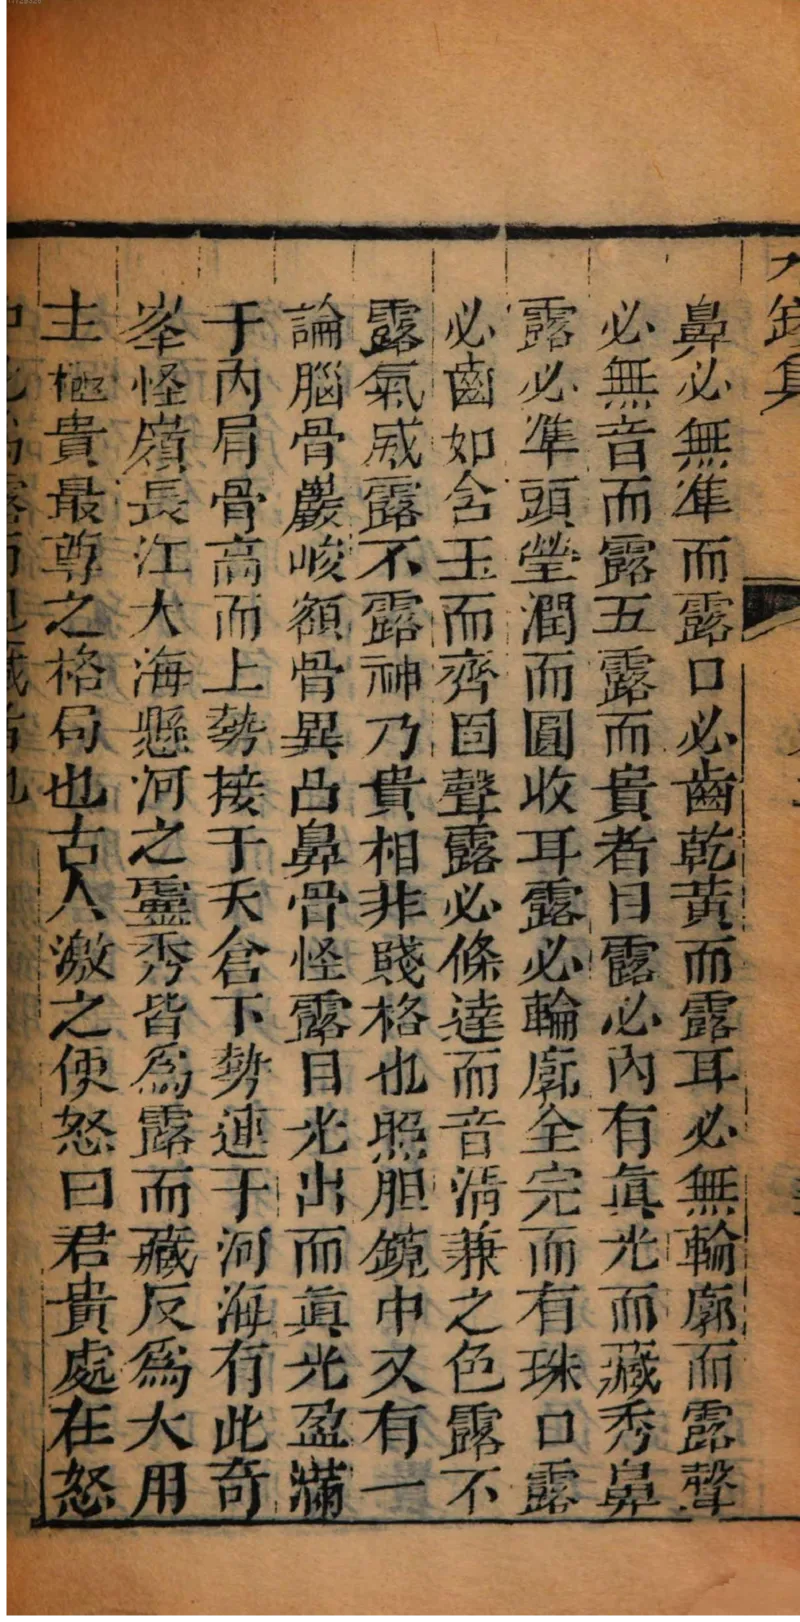 鼻必無準而露口必齒乾黃而露耳必無輪廓而露聲
必無音而露五露而貴者目露必內有眞光而藏秀鼻
露必準頭瑩潤而圓收耳露必輪廓全完而有珠口露
必齒如含玉而齊固聲露必條達而音淸兼之色露不
露氣威露不露神乃貴相非賤格也照胆鏡中又有一
論腦骨巖峻額骨異凸鼻骨怪露目光出而眞光盈滿
于內肩骨高而上勢接于天倉下勢連于河海有此奇
峯怪嶺長江大海懸河之靈秀皆爲露而藏反爲大用
主極貴最尊之格局也古人激之使怒曰君貴處在怒